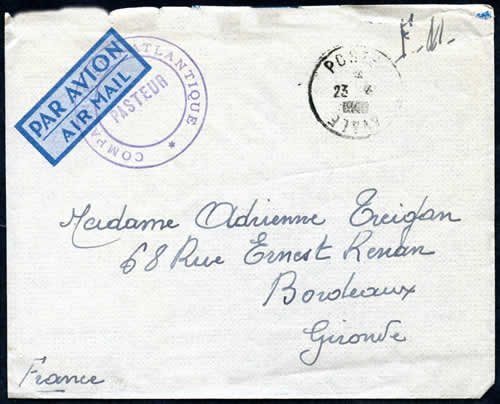 PAR AVION
AIR MAIL
COMPA ATLANTIQUE *
PASTEUR
POSTE
23
VALE
F. M.
Madame Adrienne Treigan
68 Rue Ernest Renan
Bordeaux
Gironde
France